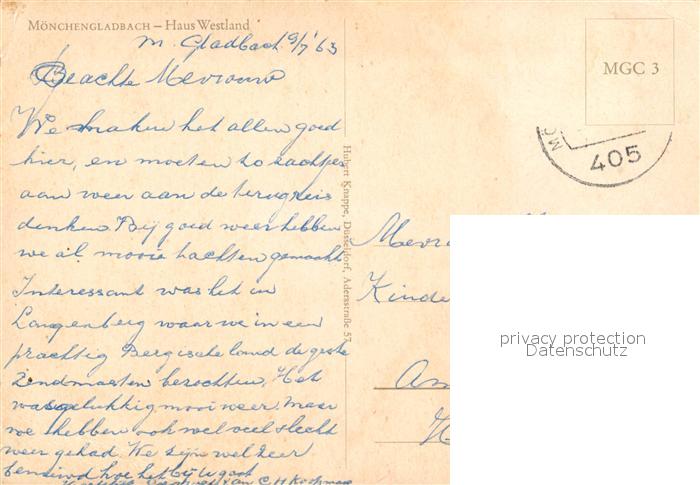 MÖNCHENGLADBACH – Haus Westland
M. Gladbach 9/7 '63
Geachte Mevrouw
We maken het allen goed
hier, en moeten zo zachtjes
aan weer aan de terugreis
denken. Bij goed weer hebben
we al mooie tochten gemaakt
Interessant was het in
Langenberg waar we in een
prachtig Bergische land de grote
Zendmasten bezochten. Het
was gelukkig mooi weer. Maar
we hebben ook wel veel slecht
weer gehad. We zijn wel zeer
benieuwd hoe het bij U gaat
van C H
Hubert Knappe, Düsseldorf, Adersstraße 57
MGC 3
MÖ
405
Mevr
Kinde
Am
H
privacy protection
Datenschutz